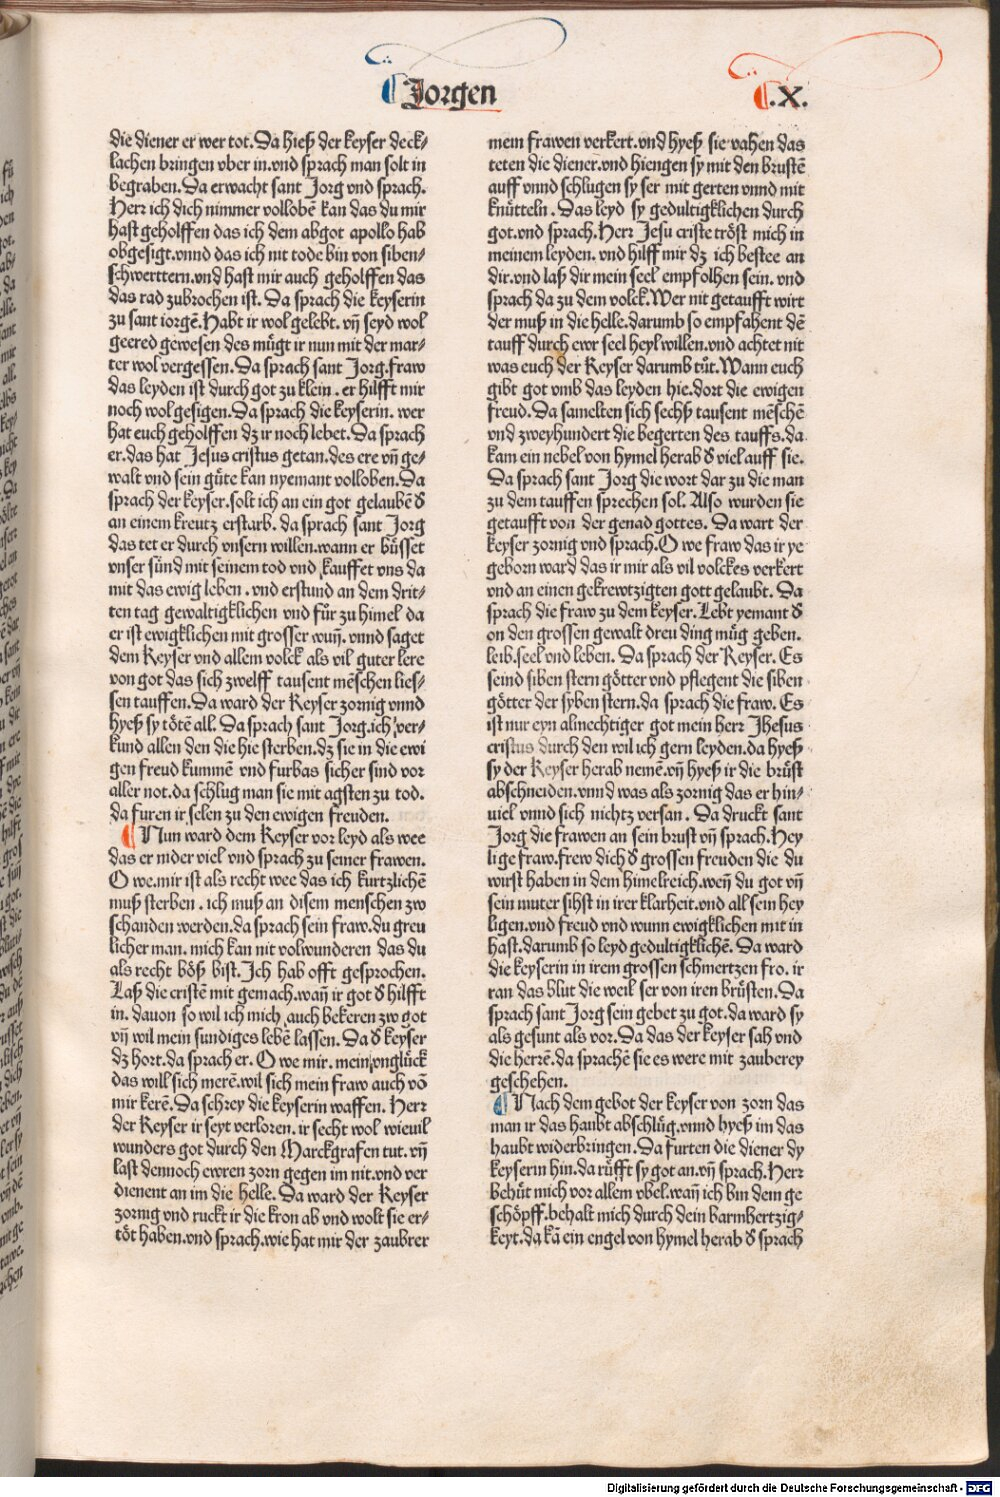 Jorgen
.X.
die diener er wer tot. Da hieß der keyser deck⸗
lachen bringen vber in. vnd sprach man solt in
begraben. Da erwacht sant Jorg vnd sprach.
Herr ich dich nimmer vollobē kan das du mir
hast geholffen das ich dem abgot apollo hab
obgesigt. vnnd das ich nit tode bin von siben⸗
schwerttern. vnd hast mir auch geholffen das
das rad zubrochen ist. Da sprach die keyserin
zu sant iorgē. Habt ir wol gelebt. vn̄ seyd wol
geered gewesen des mügt ir nun mit der mar⸗
ter wol vergessen. Da sprach sant Jorg. fraw
das leyden ist durch got zu klein. er hilfft mir
noch wol gesigen. Da sprach die keyserin. wer
hat euch geholffen dz ir noch lebet. Da sprach
er. das hat Jesus cristus getan. des ere vn̄ ge⸗
walt vnd sein gůte kan nyemant volloben. Da
sprach der keyser. solt ich an ein got gelaubē d̕
an einem kreutz erstarb. da sprach sant Jorg
das tet er durch vnsern willen. wann er büsset
vnser sünd mit seinem tod vnd kauffet vns da
mit das ewig leben. vnd erstund an dem drit⸗
ten tag gewaltigklichen vnd für zu himel da
er ist ewigklichen mit grosser wun̄. vnnd saget
dem Keyser vnd allem volck als vil guter lere
von got das sich zwelff tausent mēschen lies⸗
sen tauffen. Da ward der Keyser zornig vnnd
hyeß sy tötē all. Da sprach sant Jorg. ich ver⸗
kund allen den die hie sterben. dz sie in die ewi
gen freud kummē vnd furbas sicher sind vor
aller not. da schlug man sie mit agsten zu tod.
da furen ir selen zu den ewigen freuden.
Nun ward dem Keyser vor leyd als wee
das er nider viel vnd sprach zu seiner frawen.
O we. mir ist als recht wee das ich kurtzlichē
muß sterben. ich muß an disem menschen zw
schanden werden. da sprach sein fraw. du greu
licher man. mich kan nit volwunderen das du
als recht böß bist. Ich hab offt gesprochen.
Laß die cristē mit gemach. wan̄ ir got d̕ hilfft
in. dauon so wil ich mich auch bekeren zw got
vn̄ wil mein sundiges lebē lassen. Da d̕ keyser
dz hort. da sprach er. O we mir. mein vnglück
das will sich merē. wil sich mein fraw auch vō
mir kerē. Da schrey die keyserin waffen. Herr
der Keyser ir seyt verloren. ir secht wol wieuil
wunders got durch den Marckgrafen tut. vn̄
last dennoch ewren zorn gegen im nit. vnd ver
dienent an im die helle. Da ward der Keyser
zornig vnd ruckt ir die kron ab vnd wolt sie er⸗
töt haben. vnd sprach. wie hat mir der zaubrer
mein frawen verkert. vnd hyeß sie vahen das
teten die diener. vnd hiengen sy mit den brustē
auff vnnd schlugen sy ser mit gerten vnnd mit
knütteln. Das leyd sy gedultigklichen durch
got. vnd sprach. Herr Jesu criste tröst mich in
meinem leyden. vnd hilff mir dz ich bestee an
dir. vnd laß dir mein seel empfolhen sein. vnd
sprach da zu dem volck. Wer nit getaufft wirt
der muß in die helle. darumb so empfahent dē
tauff durch ewr seel heyl willen. vnd achtet nit
was euch der Keyser darumb tüt. Wann euch
gibt got vmb das leyden hie. dort die ewigen
freud. Da samelten sich sechß tausent mēschē
vnd zweyhundert die begerten des tauffs. da
kam ein nebel von hymel herab d̕ viel auff sie.
Da sprach sant Jorg die wort dar zu die man
zu dem tauffen sprechen sol. Also wurden sie
getaufft von der genad gottes. Da wart der
keyser zornig vnd sprach. O we fraw das ir ye
geborn ward das ir mir als vil volckes verkert
vnd an einen gekrewtzigten gott gelaubt. Da
sprach die fraw zu dem keyser. Lebt yemant d̕
on den grossen gewalt dreu ding müg geben.
leib. seel vnd leben. Da sprach der Keyser. Es
seind siben stern götter vnd pflegent die siben
götter der syben stern. da sprach die fraw. Es
ist nur eyn almechtiger got mein herr Jhesus
cristus durch den wil ich gern leyden. da hyeß
sy der Keyser herab nemē. vn̄ hyeß ir die brüst
abschneiden. vnnd was als zornig das er hin⸗
viel vnnd sich nichtz versan. Da druckt sant
Jorg die frawen an sein brust vn̄ sprach. Hey
lige fraw. frew dich d̕ grossen freuden die du
wirst haben in dem himelreich. wen̄ du got vn̄
sein muter sihst in irer klarheit. vnd all sein hey
ligen. vnd freud vnd wunn ewigklichen mit in
hast. darumb so leyd gedultigklichē. Da ward
die keyserin in irem grossen schmertzen fro. ir
ran das blüt die weil ser von iren brüsten. Da
sprach sant Jorg sein gebet zu got. da ward sy
als gesunt als vor. Da das der keyser sah vnd
die herrē. da sprachē sie es were mit zauberey
geschehen.
Nach dem gebot der keyser von zorn das
man ir das haubt abschlüg. vnnd hyeß im das
haubt widerbringen. Da furten die diener dy
keyserin hin. da rüfft sy got an. vn̄ sprach. Herr
behüt mich vor allem vbel. wan̄ ich bin dein ge
schöpff. behalt mich durch dein barmhertzig⸗
keyt. da kā ein engel von hymel herab d̕ sprach
Digitalisierung gefördert durch die Deutsche Forschungsgemeinschaft - DFG